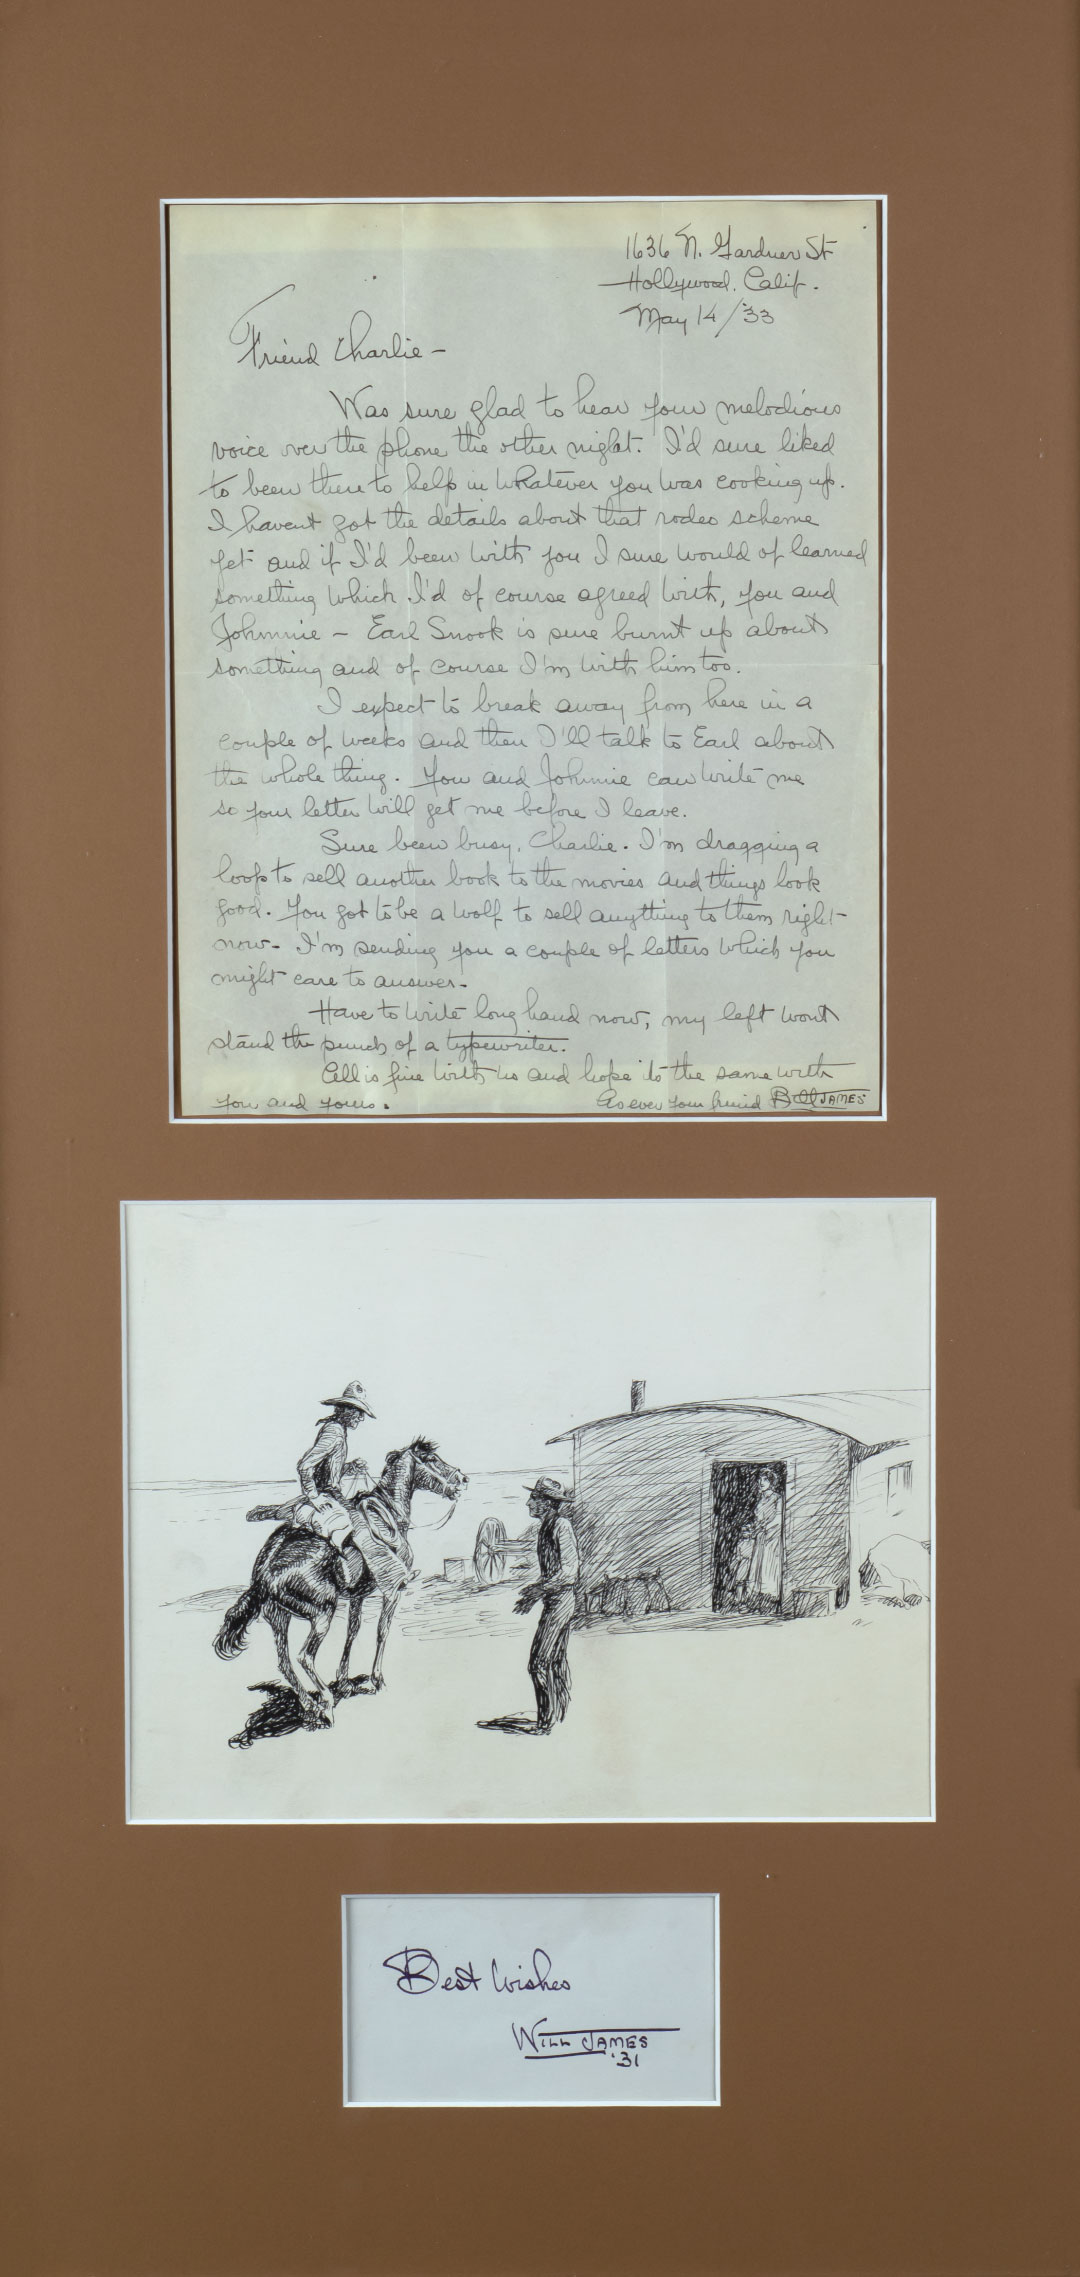 1636 N. Gardner St
Hollywood. Calif.
May 14/33
Friend Charlie -
Was sure glad to hear your melodious
voice over the phone the other night. I'd sure liked
to been there to help in whatever you was cooking up.
I havent got the details about that rodeo scheme
yet and if I'd been with you I sure would of learned
something which I'd of course agreed with, you and
Johnnie - Earl Snook is sure burnt up about
something and of course I'm with him too.
I expect to break away from here in a
couple of weeks and then I'll talk to Earl about
the whole thing. You and Johnnie can write me
so your letter will get me before I leave.
Sure been busy, Charlie. I'm dragging a
loop to sell another book to the movies and things look
good. You got to be a wolf to sell anything to them right
now - I'm sending you a couple of letters which you
might care to answer -
Have to write long hand now, my left wont
stand the punch of a typewriter.
All is fine with us and hope it's the same with
you and yours.
As ever your friend Bill JAMES
Best Wishes
WILL JAMES
'31